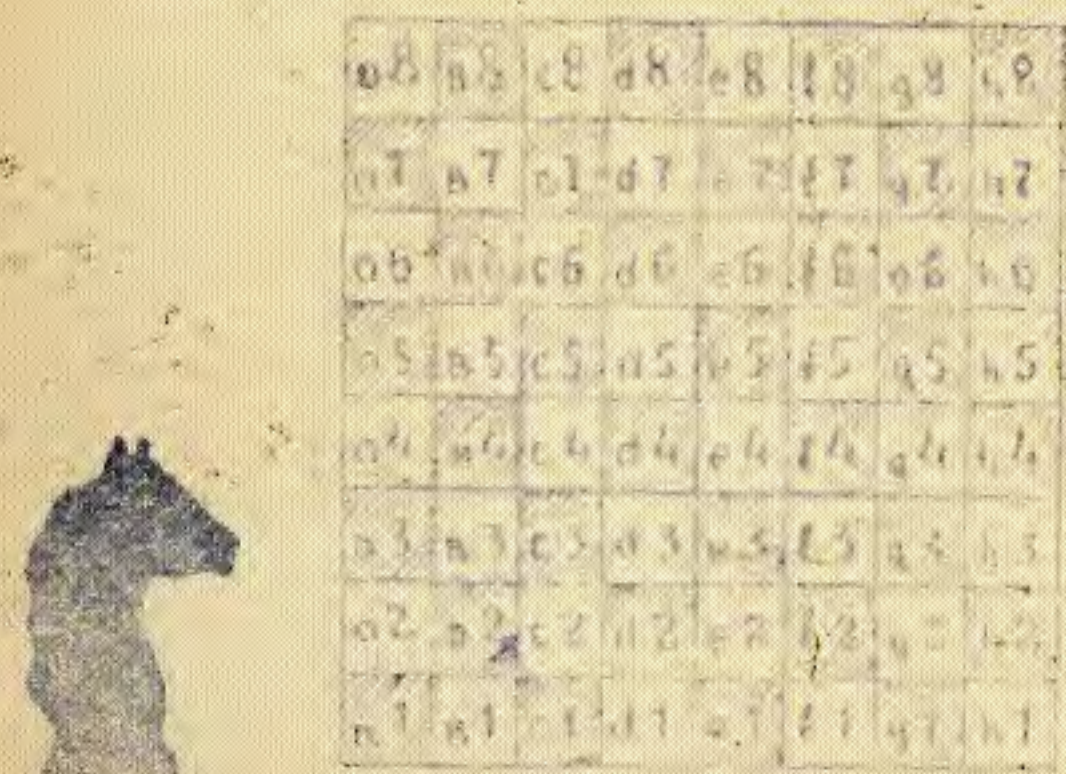 a8 в8 c8 d8 e8 f8 g8 h8
a7 в7 c7 d7 e7 f7 g7 h7
a6 в6 c6 d6 e6 f6 g6 h6
a5 в5 c5 d5 e5 f5 g5 h5
a4 в4 c4 d4 e4 f4 g4 h4
a3 в3 c3 d3 e3 f3 g3 h3
a2 в2 c2 d2 e2 f2 g2 h2
a1 в1 c1 d1 e1 f1 g1 h1